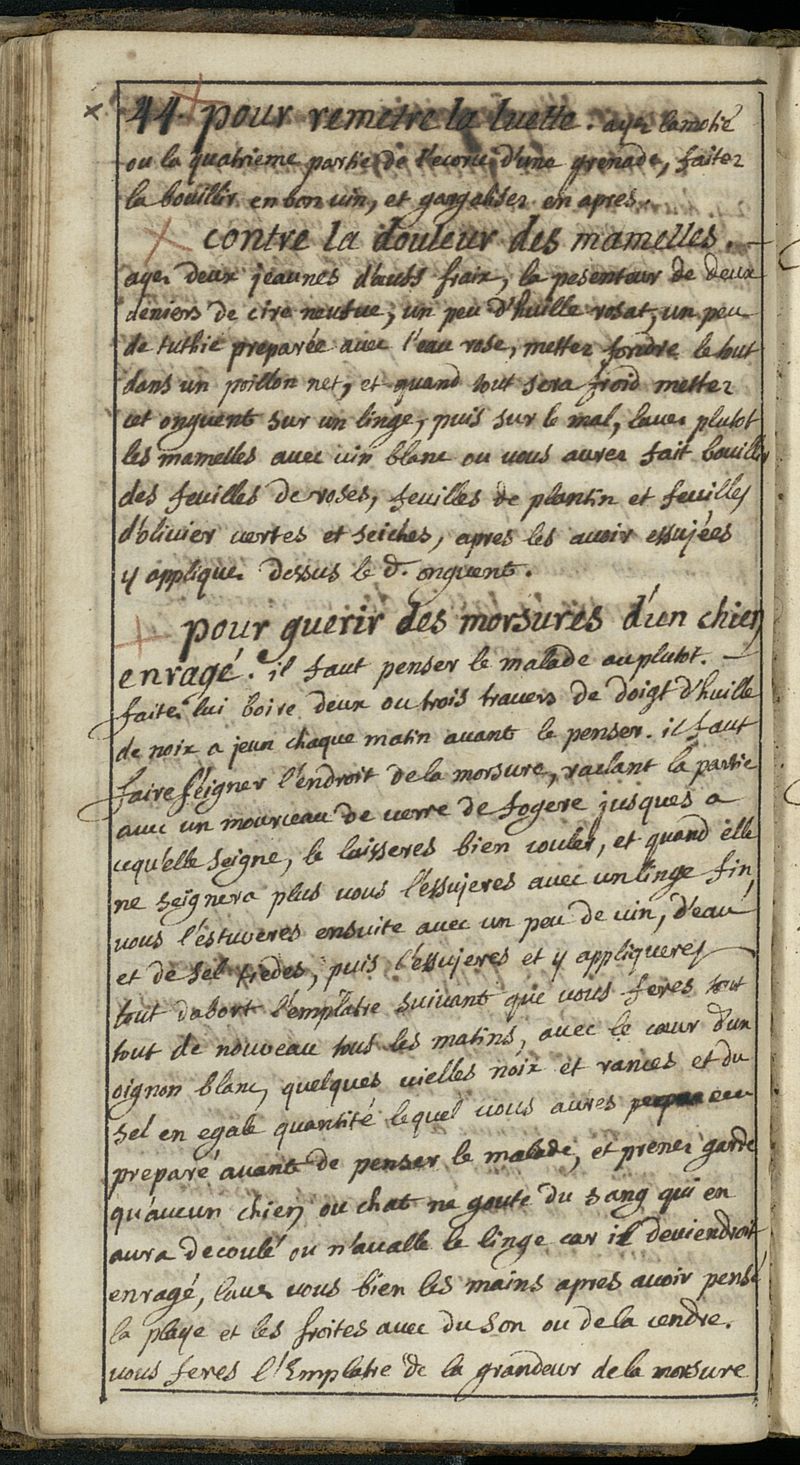 × 44. + pour remetre la luette. ayez la motié
ou la quatrieme partie de l'ecorce d'une grenade, faitez
la bouillir en bon vin, et gargalisez en apres.
× contre la douleur des mamelles. —
ayez deux jeaunes d'œufs fraix, la pesenteur de deux
deniers de cire neufue, un peu d'huille rosat, un peu
de tuthie preparée avec l'eau rose, mettez fondre le tout
dans un poillon net, et quand tout sera froid mettez
cet onguent sur un linge, puis sur le mal, lavez plutot
les mamelles avec vin blanc ou vous aurez fait bouillir
des feuilles de roses, feuilles de plantin et feuilles
d'olivier vertes et seiches, apres les avoir essujées
y appliquez dessus le d. onguent.
+ pour guerir des morsures d'un chien
enragé. il faut penser le malade au plutot. —
faitez lui boire deux ou trois travers de doigt d'huille
de noix a jeun chaque matin avant le penser. il faut
faire seigner l'endroit de la morsure, raclant la partie
avec un mourceau de verre de fogere jusques a
cequ'elle seigne, le laisseres bien couler, et quand elle
ne seignera plus vous l'essujeres avec un linge fin,
vous l'estuveres ensuite avec un peu de vin, d'eau
et de sel tiedes, puis l'essujeres et y appliqueres
tout dabort l'emplatre suivant que vous feres tout
tout de nouveau tous les matins, avec le cœur d'un
oignon blanc, quelques vielles noix et rances et du
sel en egale quantité lequel vous aures
preparé avant de penser le malade, et prenez garde
qu'aucun chien ou chat ne goute du sang qui en
aura decoulé ou n'avalle le linge car il deviendroit
enragé, lavez vous bien les mains apres avoir pensé
la playe et les froites avec du son ou de la cendre.
vous feres l'Emplatre de la grandeur de la morsure